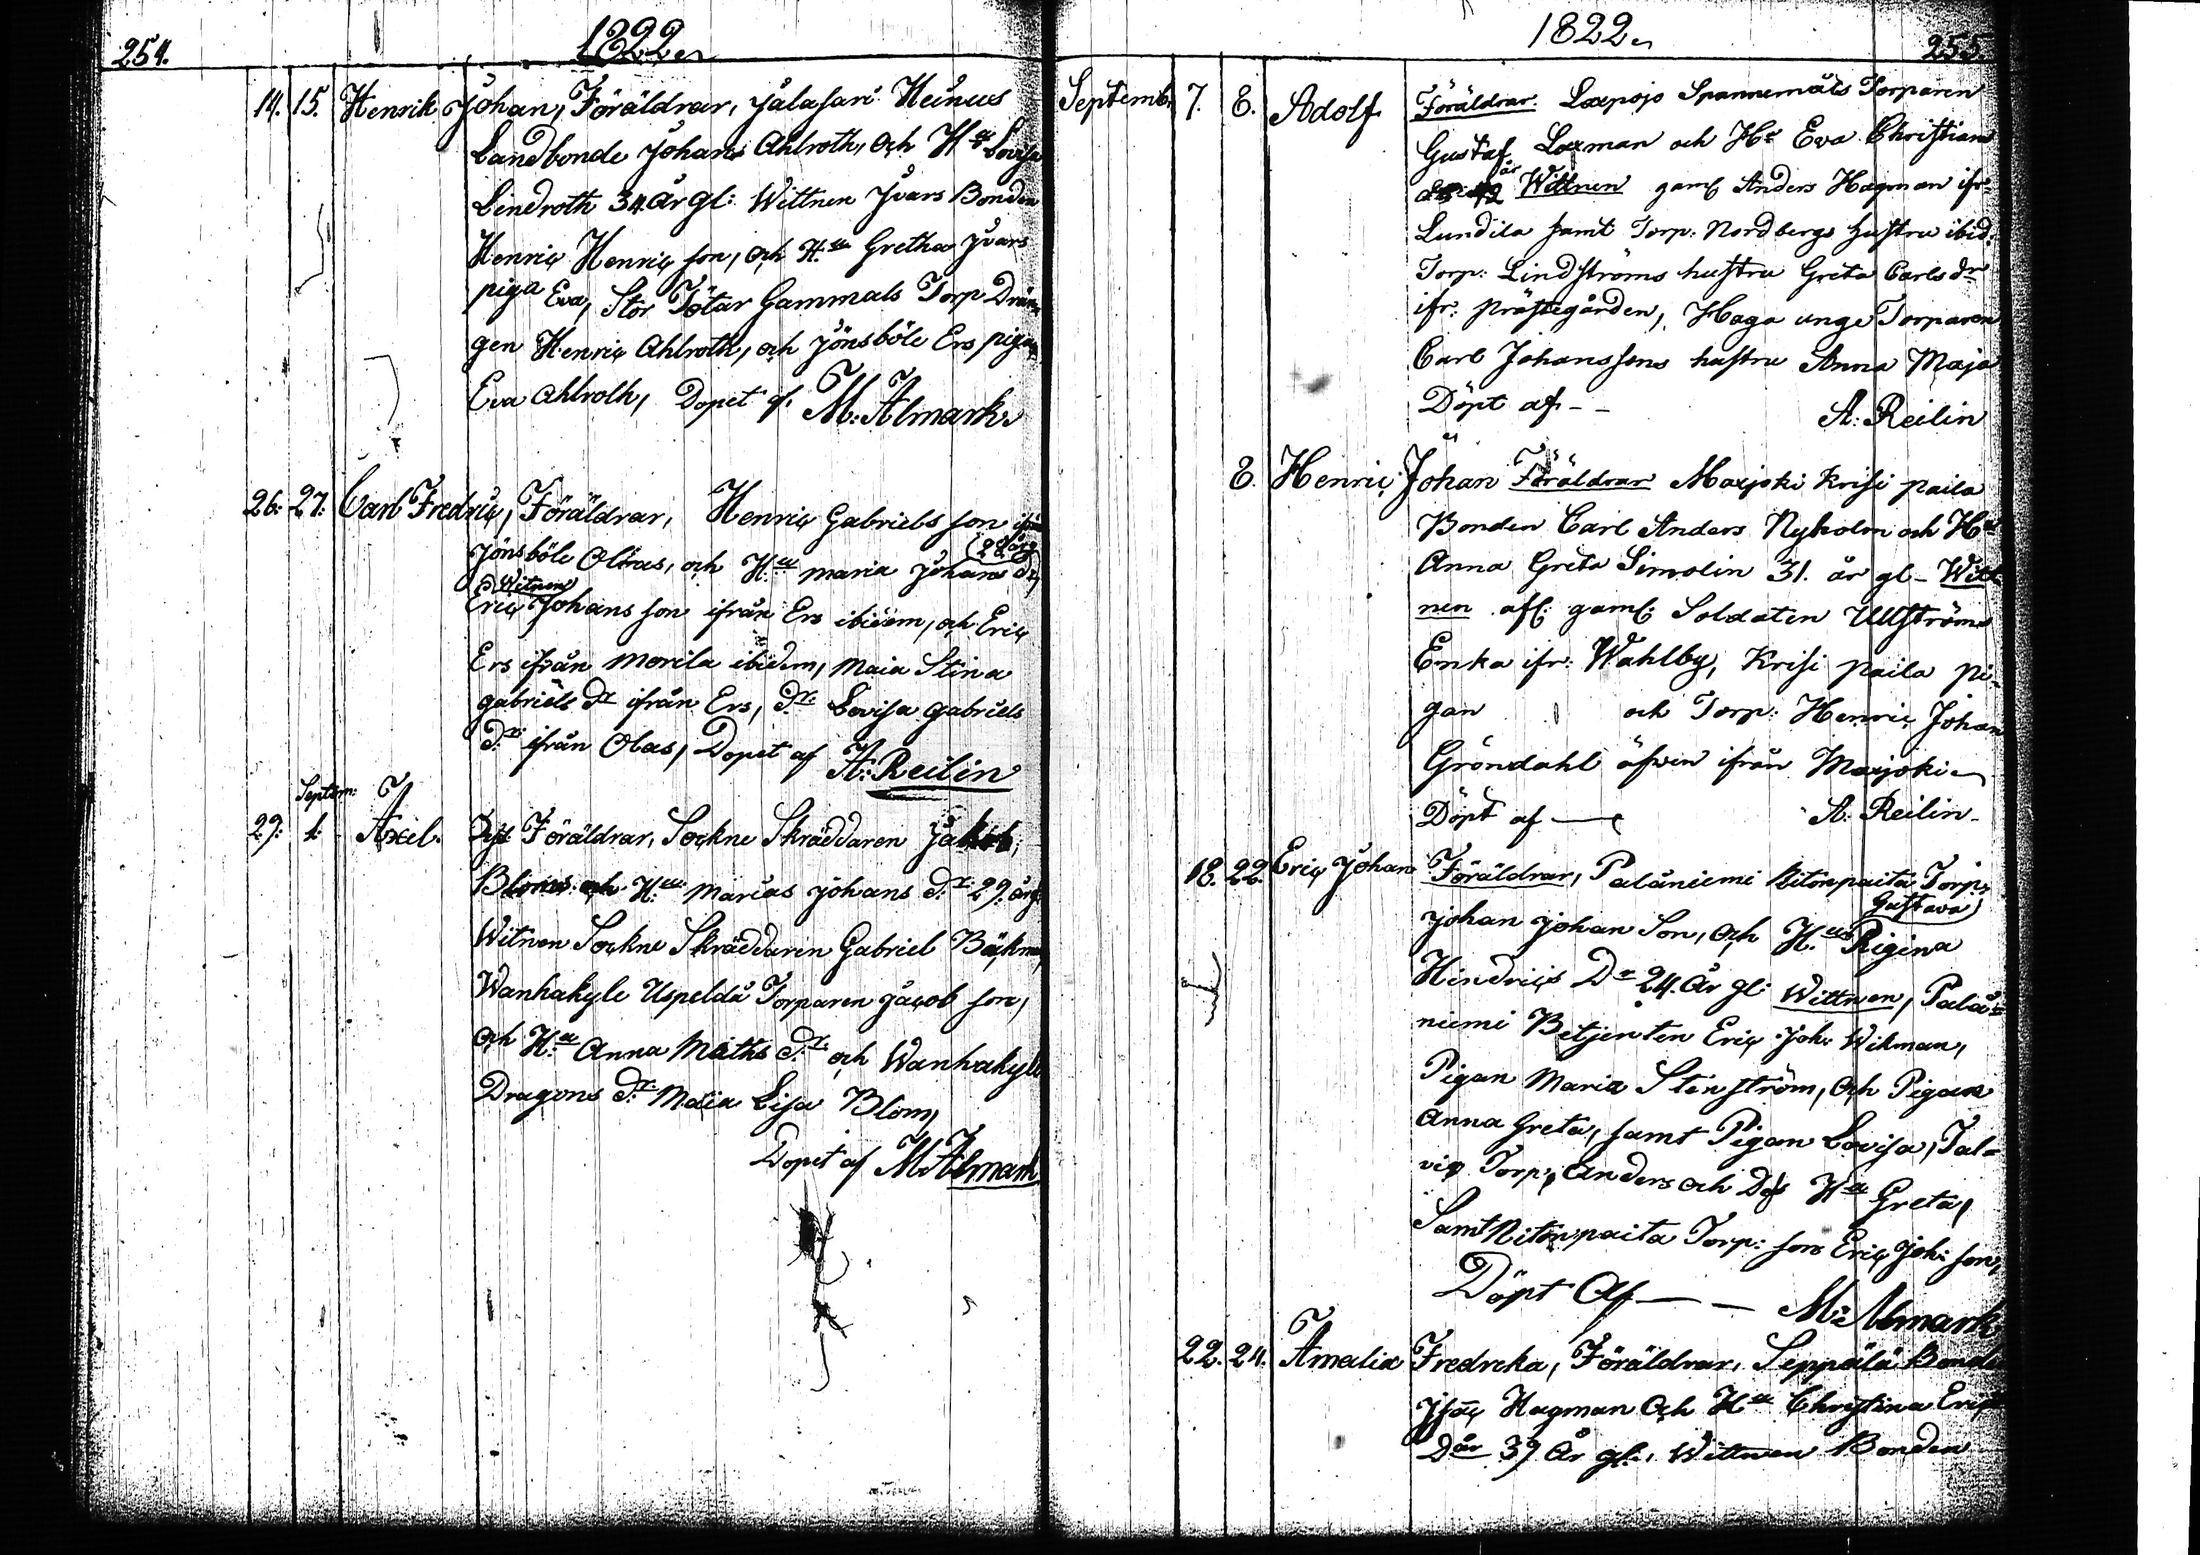 254.
1822.
14. 15. Henrik Johan, Föräldrar, Jålasari Heinus
Landbonde Johans Ahlroth, och H:u Lovisa
Lindroth 34 år gl: Wittnen Jvars Bonden
Henric Henric son, och H:u Gretha Jvars
piga Eva, Stor Tötar Gammals Torp Drän,
gen Henric Ahlroth, och Jönsböle Ers pigan
Eva Ahlroth, Dopet af. M: Almark.
26. 27. Carl Fredric, Föräldrar, Henric Gabriels son ifrån
22 årg
Jönsböle Olcras, och H:u maria Johans dr,
Witnen
Eric Johans son ifrån Ers ibidem, och Eric
Ers ifrån morila ibidem, Maia Stina
gabriels dr ifrån Ers, dr: Lovisa gabriels
dr: ifrån Olas, Dopet af A: Reilin
Septem:
29: 1: Axel. Föräldrar, Sockne Skräddaren Jakob,
Bloms och H:u Marias Johans dr: 29. årg.
Witnen Sockne Skräddaren Gabriel Bäckman,
Wanhakyle Uspeldä Torparen Jacob son,
och H:u Anna Maths dr: och Wanhakyle
Dragons dr: Maia Lisa Blom,
Dopet af M. Almark
1822.
255.
Septemb. 7. 8. Adolf Föräldrar. Laxpojo Spannemäls Torparen
Gustaf Laxman och H:u Eva Christians
år
42 Wittnen gaml Anders Hagman ifr:
Lundila samt Torp: Nordbergs hustru ibid.
Torp: Lindströms hustru Greta Carls dr
ifr: Prästegården, Haga unge Torparen
Carl Johanssons hustru Anna Maja
Döpt af - - A: Reilin
8. Henric Johan Föräldrar Marjoki Krisi paila
Bonden Carl Anders Nyholm och H:u
Anna Greta Simolin 31. år gl - Witt
nen afl: gaml: Soldaten Ullströms
Enka ifr: Wahlby, Krisi paila pi-
gan och Torp: Henric Johan
Gröndahl äfven ifrån Marjoki
Döpt af — A. Reilin
18. 22. Eric Johan Föräldrar, Palåniemi Nitönpaita Torp:
Gustava
Johan Johan Son, och H:u Rigina
Hindrics Dr 24. år gl: Wittnen, Palå=
niemi Betjenten Eric Joh: Wikman,
Pigan Maria Stenström, och Pigan
Anna Greta, samt Pigan Lovisa, Tal=
viq Torp; Anders och Ds H:u Greta,
Samt Nitönpaita Torp: sons Eric Joh: son,
Döpt Af — — M: Almark
22. 24. Amalia Fredreka, Föräldrar, Seppälä Bonde
Jsac Hagman och H:u Christina Erics
Dår 39 År gl:, Wittnen Bonden